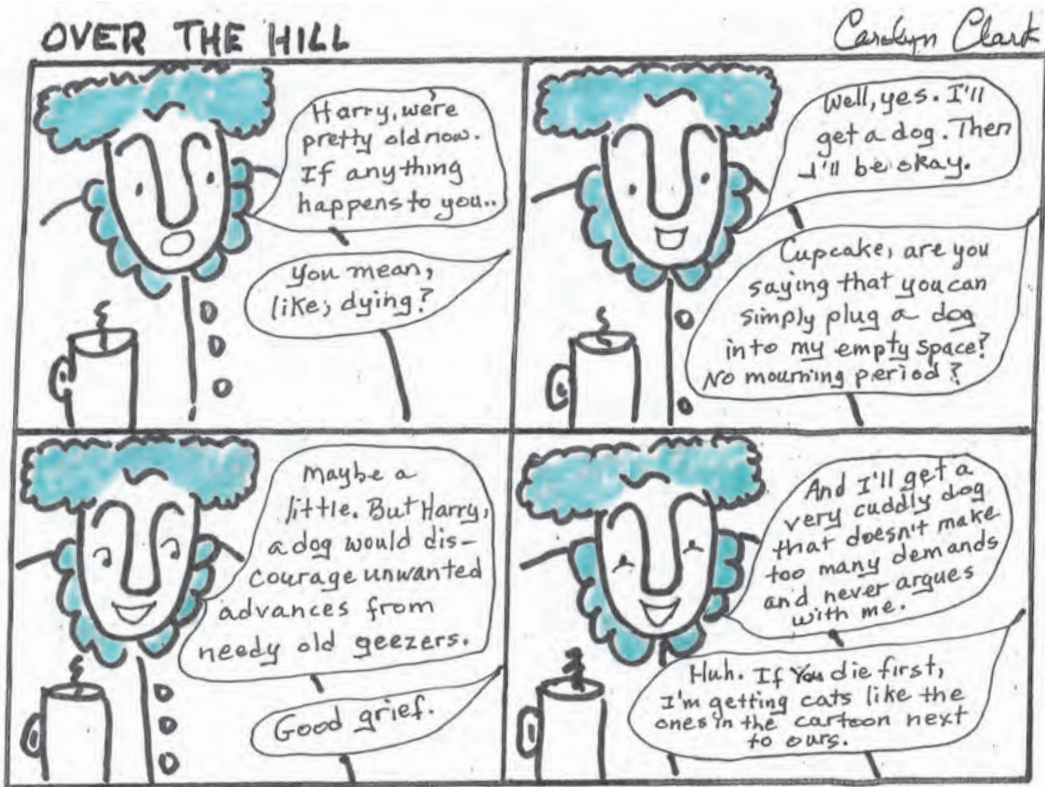 OVER THE HILL
Carolyn Clark
Harry, we're
pretty old now.
If anything
happens to you..
You mean,
like, dying?
Well, yes. I'll
get a dog. Then
I'll be okay.
Cupcake, are you
saying that you can
simply plug a dog
into my empty space?
No mourning period?
Maybe a
little. But Harry,
a dog would dis-
courage unwanted
advances from
needy old geezers.
Good grief.
And I'll get a
very cuddly dog
that doesn't make
too many demands
and never argues
with me.
Huh. If You die first,
I'm getting cats like the
ones in the cartoon next
to ours.